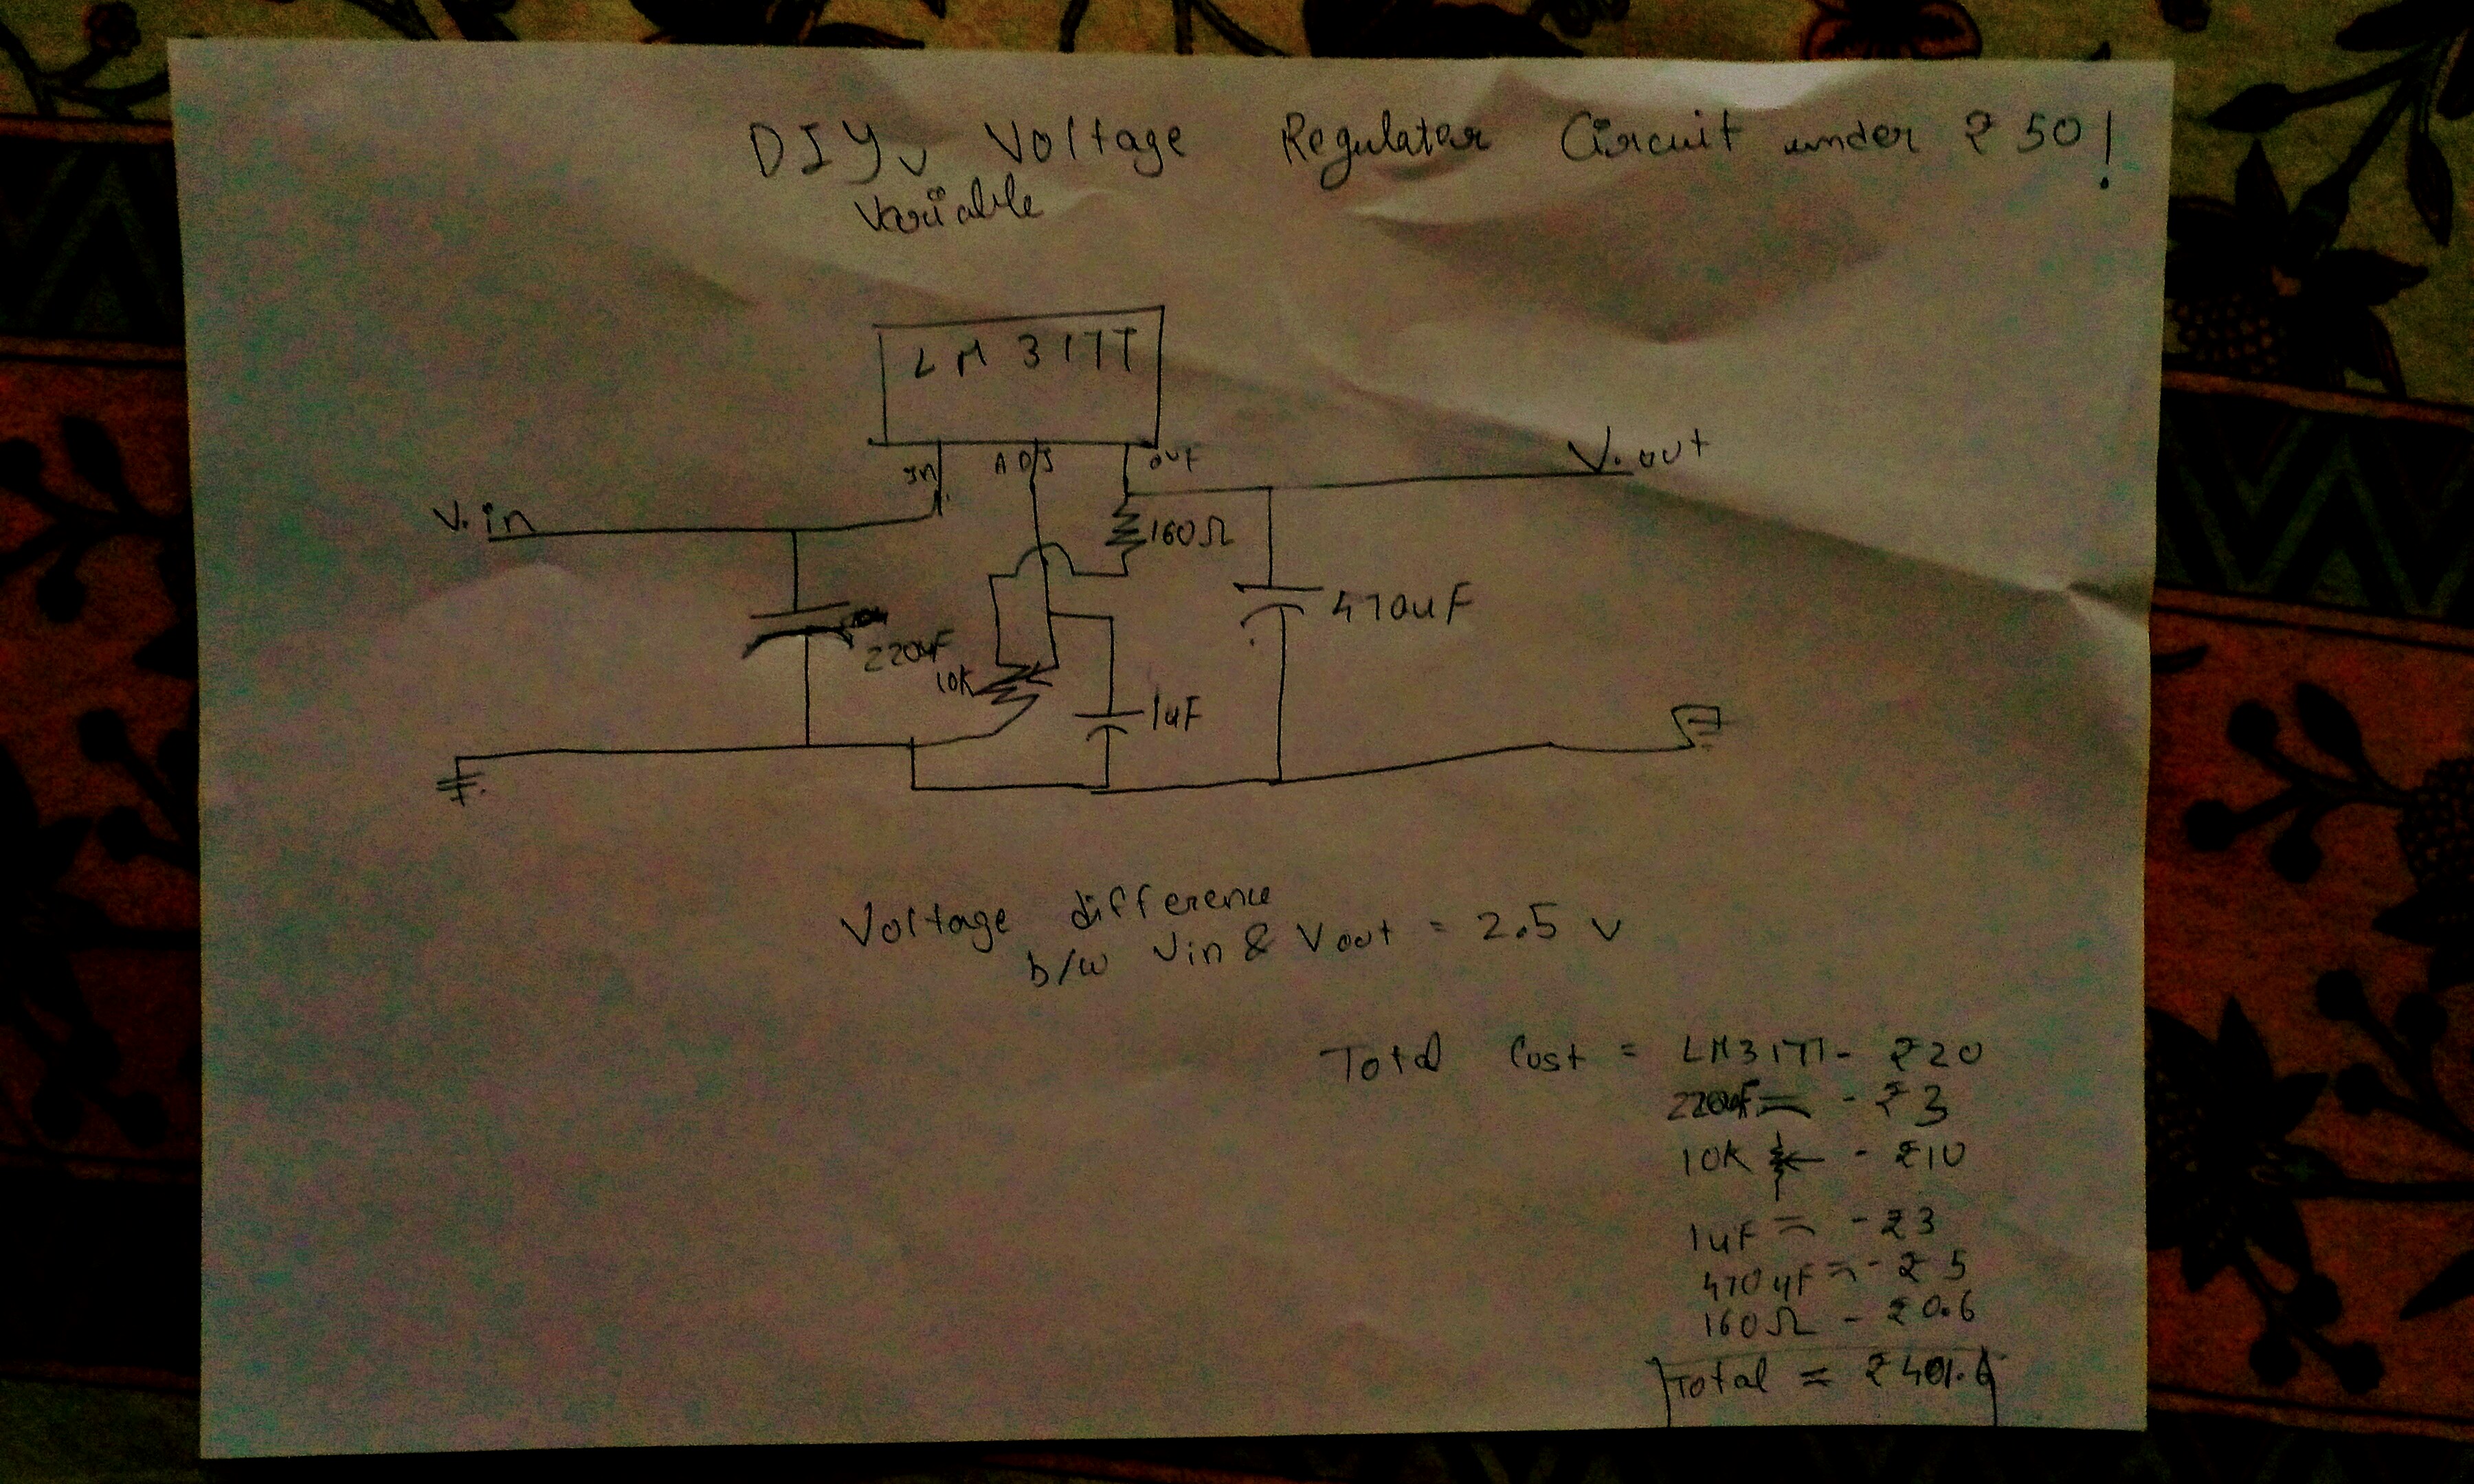 DIY Voltage Regulator Circuit under ₹ 50!
Variable
LM 317T
In ADJ out
V.in
V.out
160Ω
220uF
10K
470uF
1uF
Voltage difference
b/w Vin & Vout = 2.5 v
Total Cost = LM317T - ₹20
220uF - ₹3
10K - ₹10
1uF - ₹3
470uF - ₹5
160Ω - ₹0.6
Total =